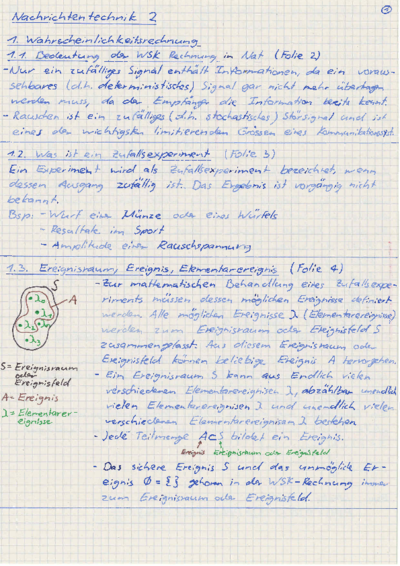 Nachrichtentechnik 2
3
1. Wahrscheinlichkeitsrechnung
1.1. Bedeutung der WSK Rechnung in Nat (Folie 2)
- Nur ein zufälliges Signal enthält Informationen, da ein voraus-
sehbares (d.h. deterministisches) Signal gar nicht mehr übertragen
werden muss, da der Empfänger die Information bereits kennt.
- Rauschen ist ein zufälliges (d.h. stochastisches) Störsignal und ist
eines der wichtigsten limitierenden Grössen eines Kommunikationssyst.
1.2. Was ist ein Zufallsexperiment (Folie 3)
Ein Experiment wird als Zufallsexperiment bezeichnet, wenn
dessen Ausgang zufällig ist. Das Ergebnis ist vorgängig nicht
bekannt.
Bsp: - Wurf einer Münze oder eines Würfels
- Resultate im Sport
- Amplitude einer Rauschspannung
1.3. Ereignisraum, Ereignis, Elementarereignis (Folie 4)
S
A
λ
S = Ereignisraum
oder
Ereignisfeld
A = Ereignis
λ = Elementarer-
eignisse
- Zur mathematischen Behandlung eines Zufallsexpe-
riments müssen dessen möglichen Ereignisse definiert
werden. Alle möglichen Ereignisse λ (Elementarereignisse)
werden zum Ereignisraum oder Ereignisfeld S
zusammengefasst. Aus diesem Ereignisraum oder
Ereignisfeld können beliebige Ereignis A hervorgehen.
- Ein Ereignisraum S kann aus Endlich vielen
verschiedenen Elementarereignisen λ, abzählbar unendlich
vielen Elementarereignisen λ und unendlich vielen
verschiedenen Elementarereignisen λ bestehen
- Jede Teilmenge A⊂S bildet ein Ereignis.
Ereignis Ereignisraum oder Ereignisfeld
- Das sichere Ereignis S und das unmöglich Er-
eignis Ø = { } gehören in der WSK-Rechnung immer
zum Ereignisraum oder Ereignisfeld.